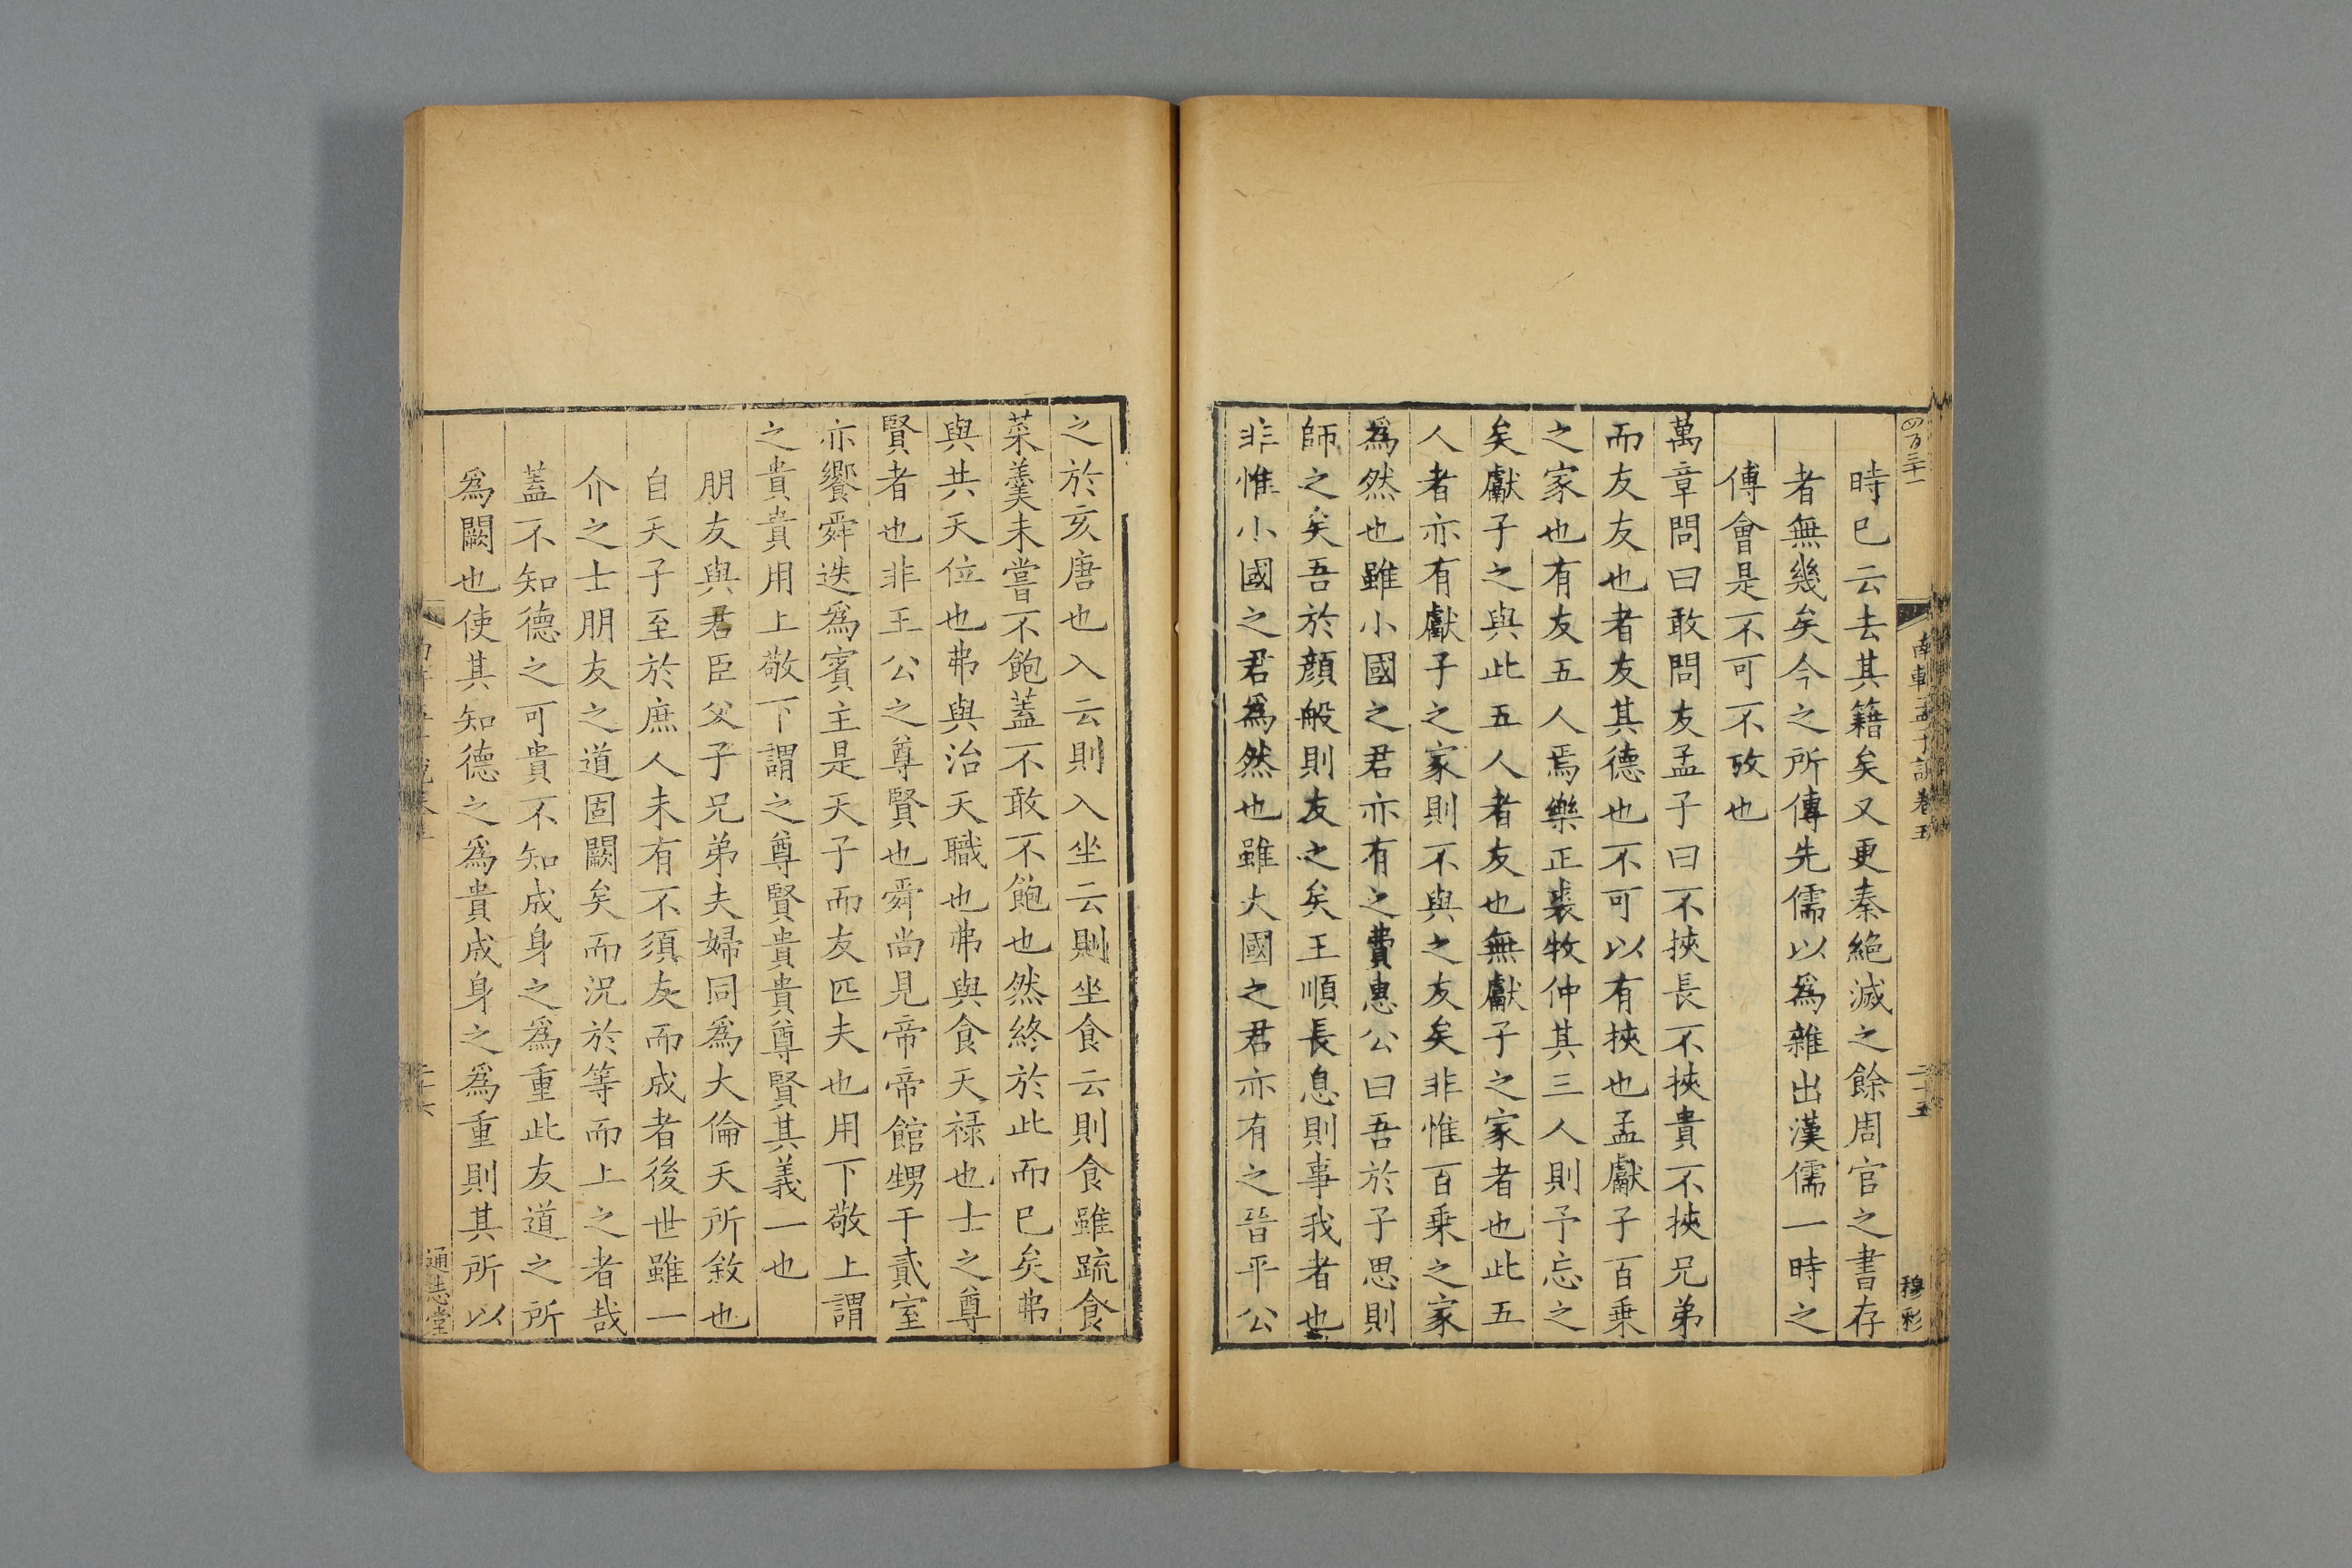 四百三十一
南軒孟子說卷五
二十五
穆彩
時已云去其籍矣又更秦絶滅之餘周官之書存
者無幾矣今之所傳先儒以爲雜出漢儒一時之
傅會是不可不攷也
萬章問曰敢問友孟子曰不挾長不挾貴不挾兄弟
而友友也者友其德也不可以有挾也孟獻子百乗
之家也有友五人焉樂正裘牧仲其三人則予忘之
矣獻子之與此五人者友也無獻子之家者也此五
人者亦有獻子之家則不與之友矣非惟百乗之家
爲然也雖小國之君亦有之費惠公曰吾於子思則
師之矣吾於顔般則友之矣王順長息則事我者也
非惟小國之君爲然也雖大國之君亦有之晉平公
之於亥唐也入云則入坐云則坐食云則食雖疏食
菜羹未嘗不飽蓋不敢不飽也然終於此而已矣弗
與共天位也弗與治天職也弗與食天禄也士之尊
賢者也非王公之尊賢也舜尚見帝帝館甥于貳室
亦饗舜迭爲賓主是天子而友匹夫也用下敬上謂
之貴貴用上敬下謂之尊賢貴貴尊賢其義一也
朋友與君臣父子兄弟夫婦同爲大倫天所敘也
自天子至於庶人未有不須友而成者後世雖一
介之士朋友之道固闕矣而況於等而上之者哉
蓋不知德之可貴不知成身之爲重此友道之所
爲闕也使其知德之爲貴成身之爲重則其所以
二十六
通志堂